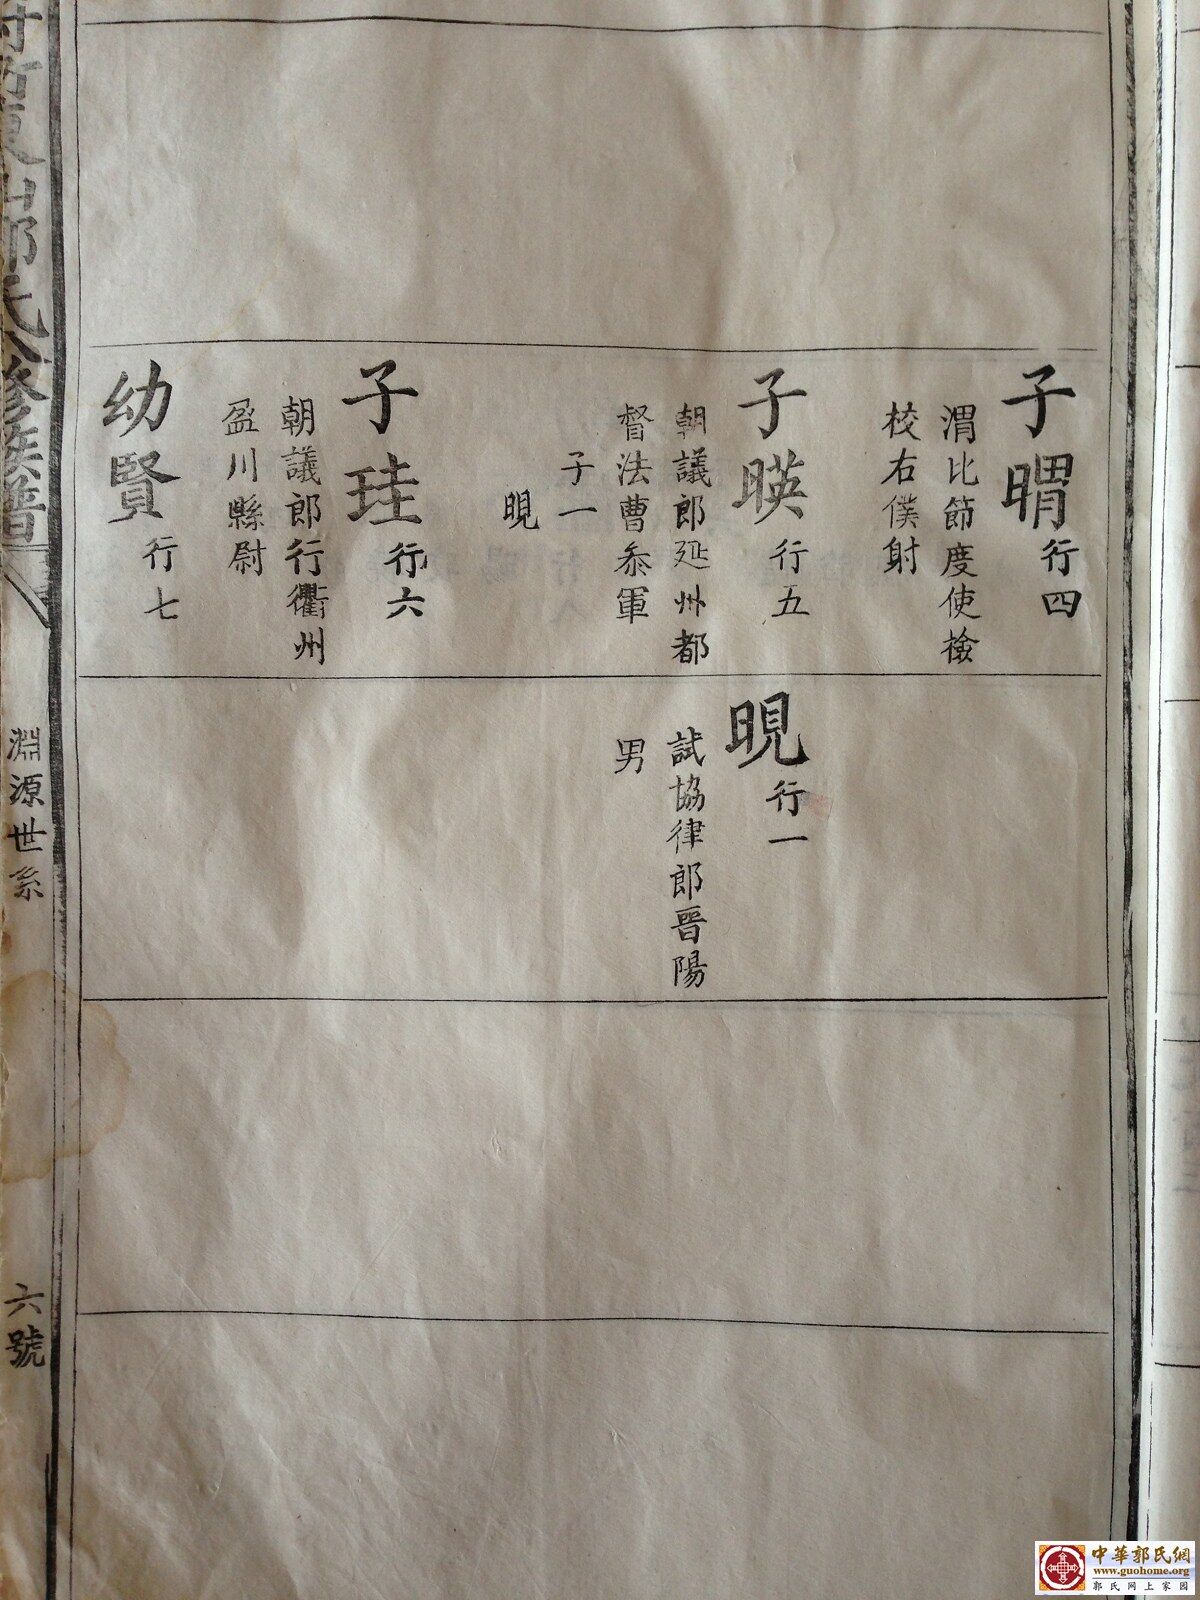 子㬙行四
渭比節度使檢
校右僕射
子暎行五
朝議郎延州都
督法曹叅軍
子一
晛
子珪行六
朝議郎行衢州
盈川縣尉
幼賢行七
晛行一
試協律郎晉陽
男
郭氏合修族譜
淵源世系
六號
中華郭氏網
www.guohome.org
郭氏网上家园